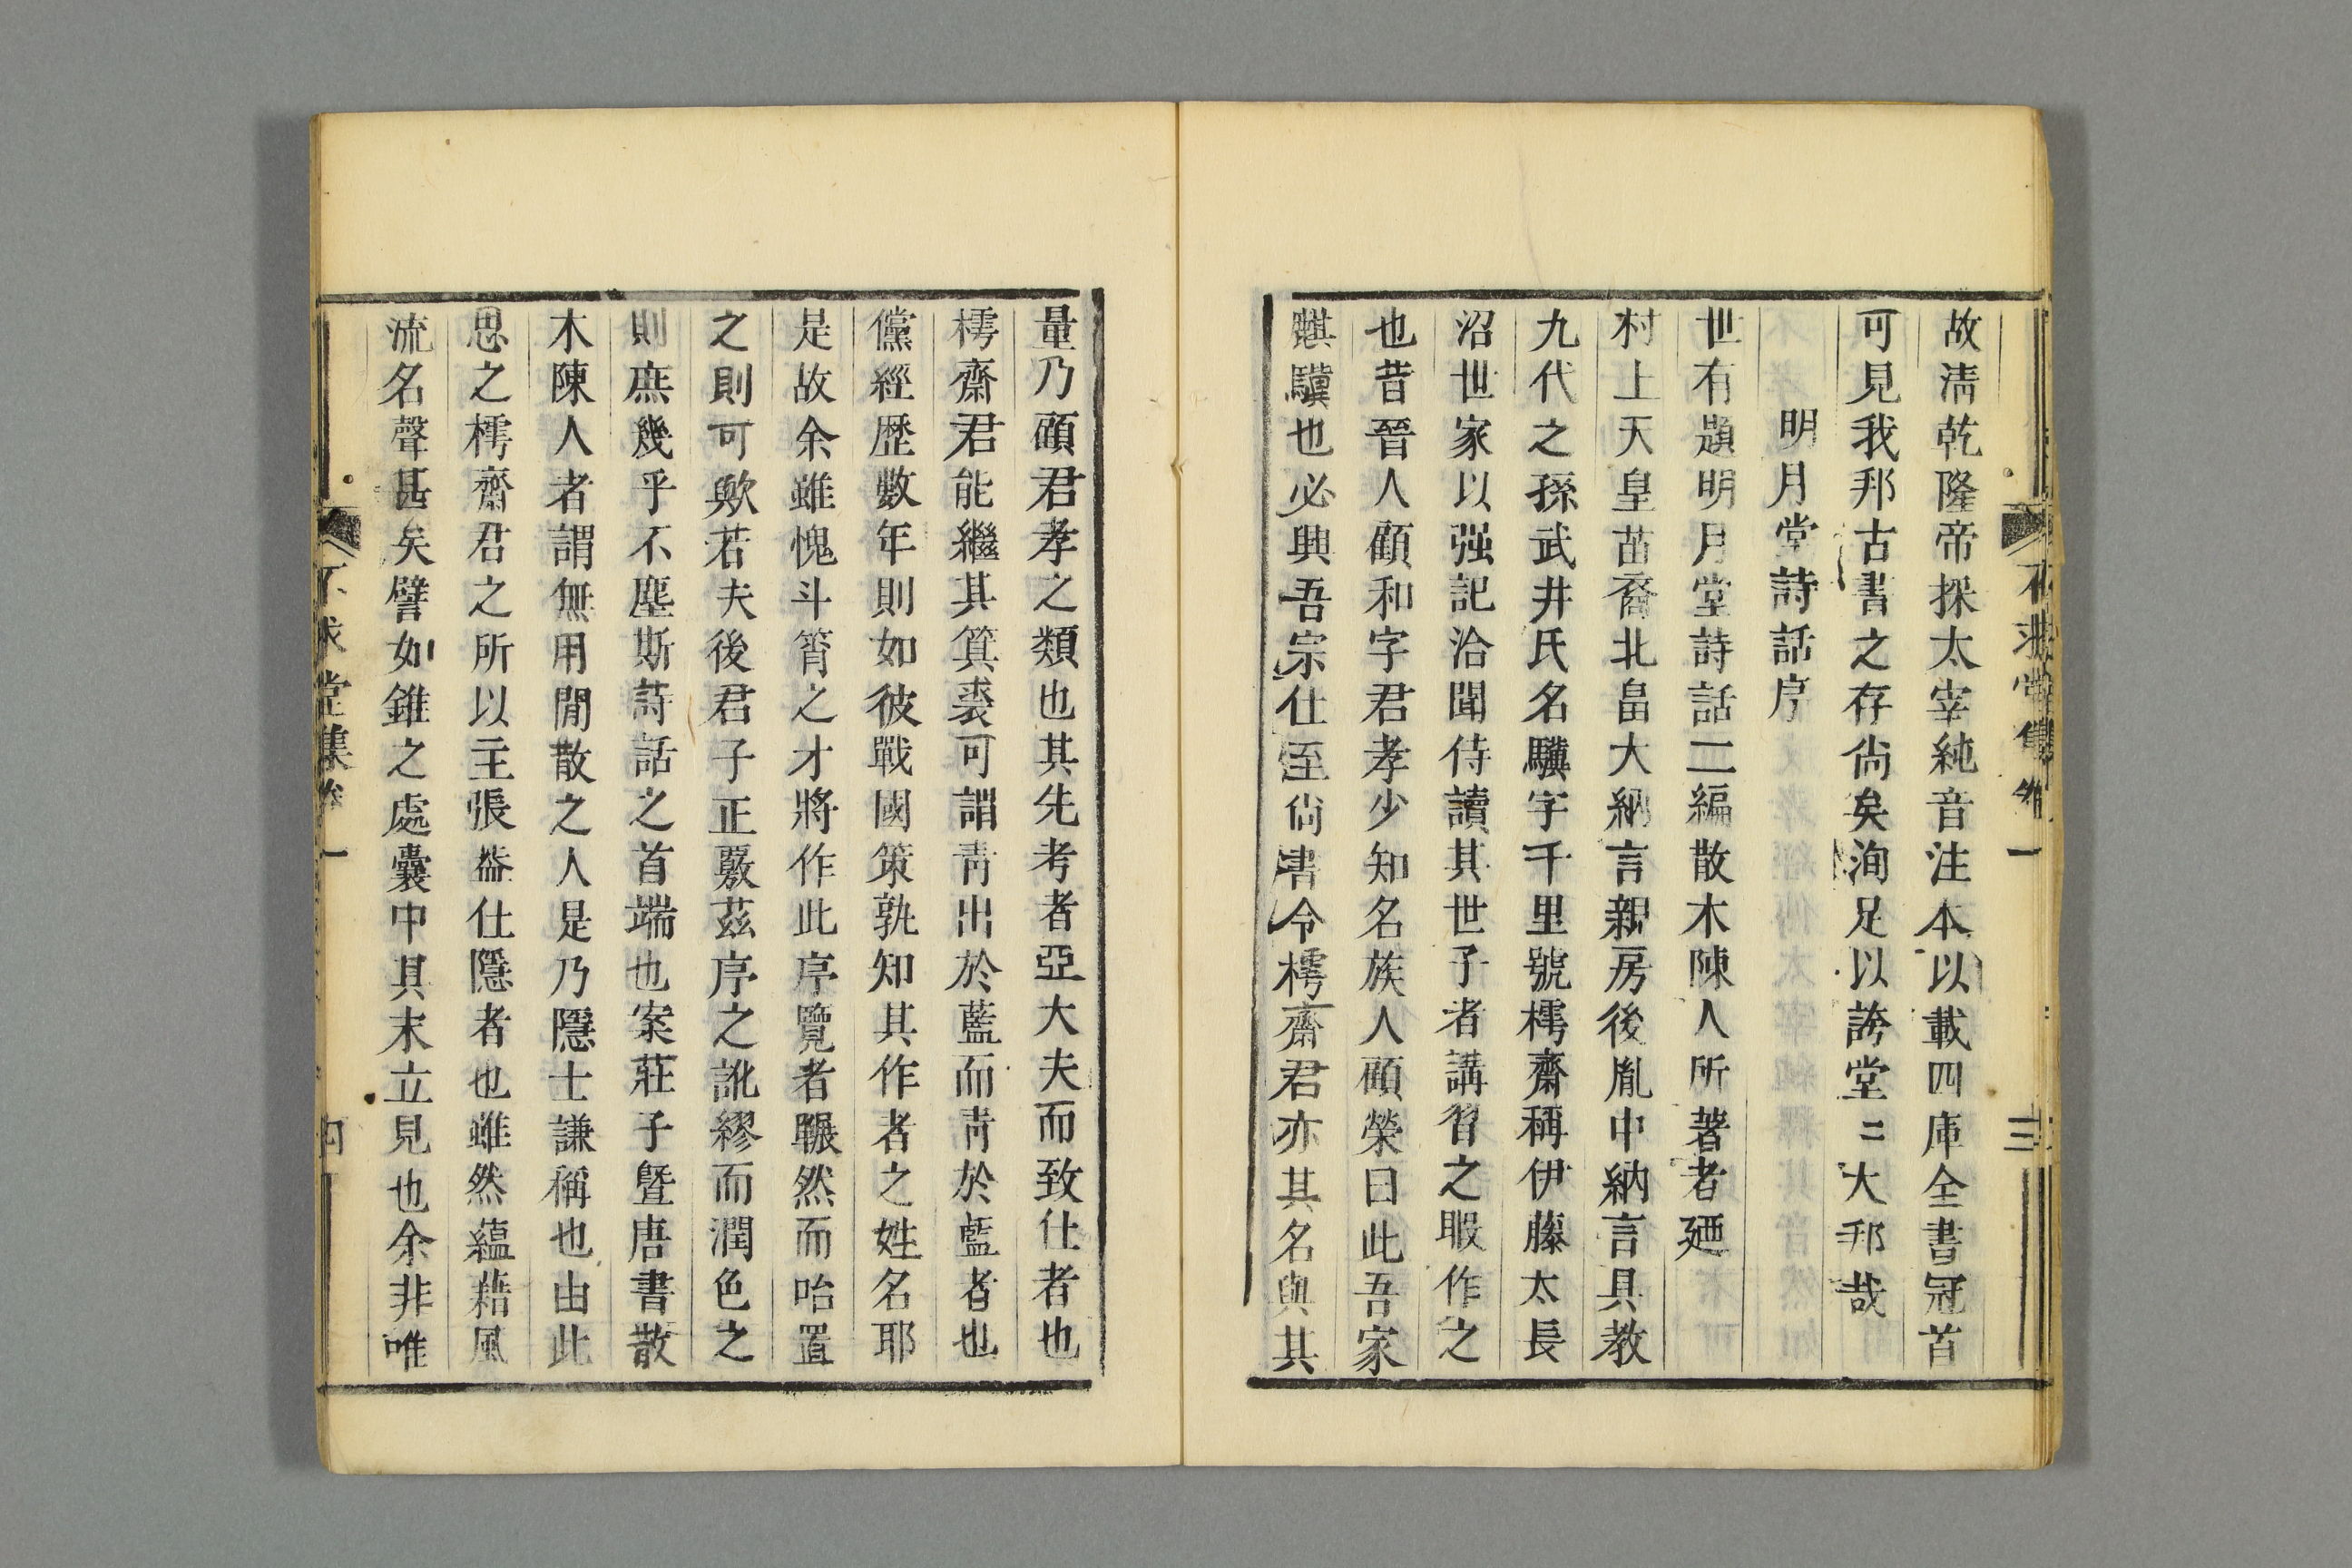 不求堂集卷一
三
故淸乾隆帝採太宰純音注本以載四庫全書冠首
可見我邦古書之存尙矣洵足以誇堂〻大邦哉
明月堂詩話序
世有題明月堂詩話二編散木陳人所著者廼
村上天皇苗裔北畠大納言親房後胤中納言具教
九代之孫武井氏名驥字千里號樗齋稱伊藤太長
沼世家以强記洽聞侍讀其世子者講習之暇作之
也昔晉人顧和字君孝少知名族人顧榮曰此吾家
麒驥也必興吾宗仕至尙書令樗齋君亦其名與其
量乃顧君孝之類也其先考者亞大夫而致仕者也
樗齋君能繼其箕裘可謂靑出於藍而靑於藍者也
儻經歷數年則如彼戰國策孰知其作者之姓名耶
是故余雖愧斗筲之才將作此序覽者囅然而咍置
之則可歟若夫後君子正覈茲序之訛繆而潤色之
則庶幾乎不塵斯詩話之首端也案莊子曁唐書散
木陳人者謂無用閒散之人是乃隱士謙稱也由此
思之樗齋君之所以主張葢仕隱者也雖然蘊藉風
流名聲甚矣譬如錐之處囊中其末立見也余非唯
不求堂集卷一
四